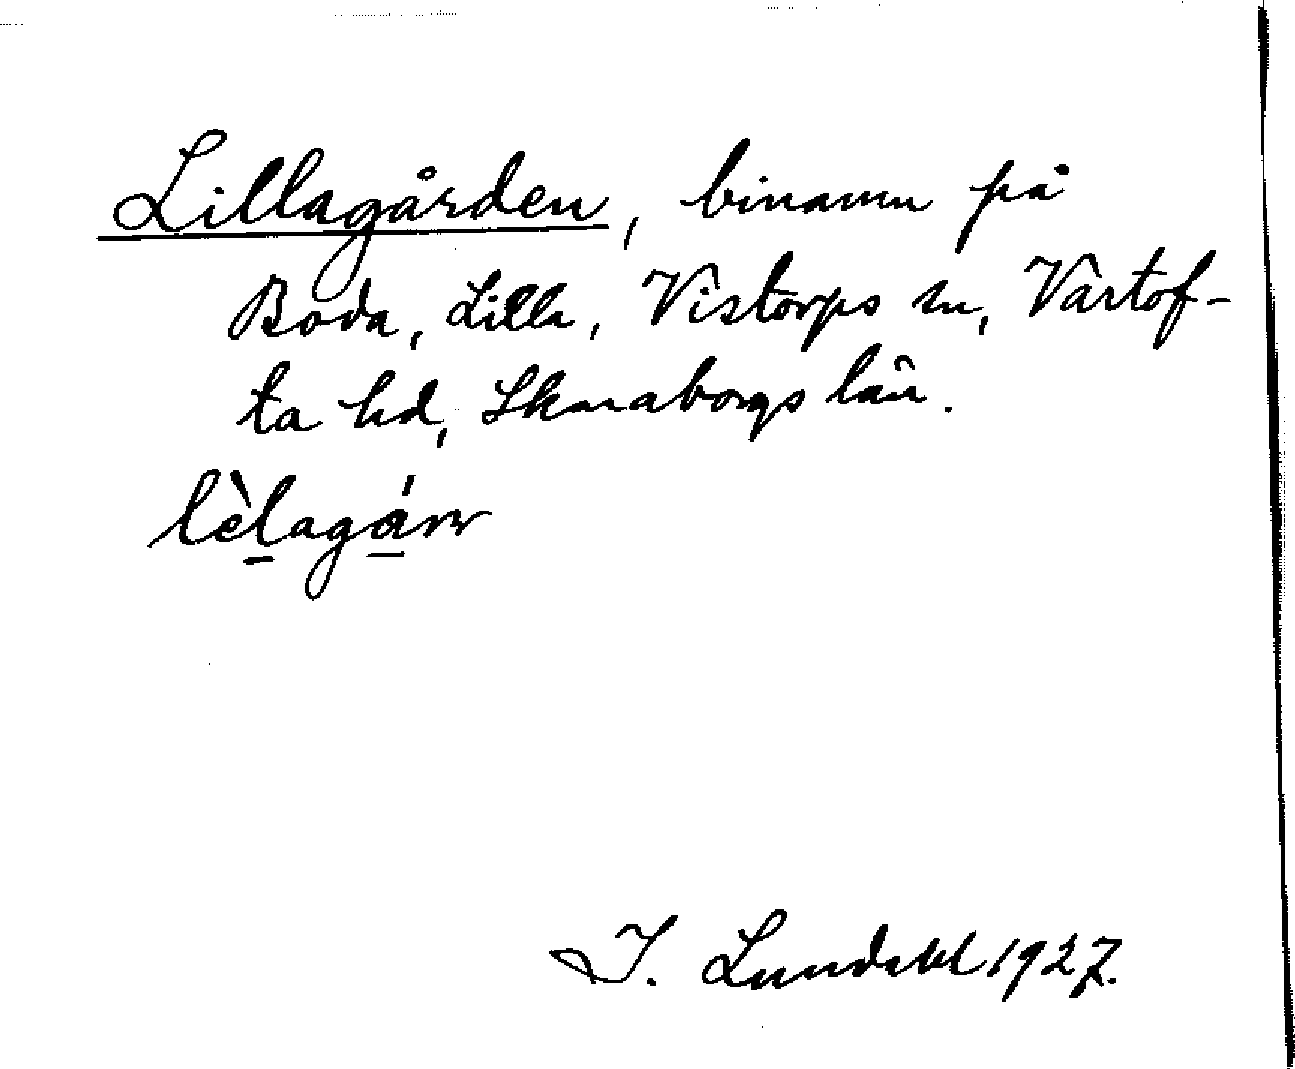 Lillagården, binamn på
Boda, Lilla, Vistorps sn, Vartof-
ta hd, Skaraborgs län.
lèlagárn
I. Lundahl 1927.